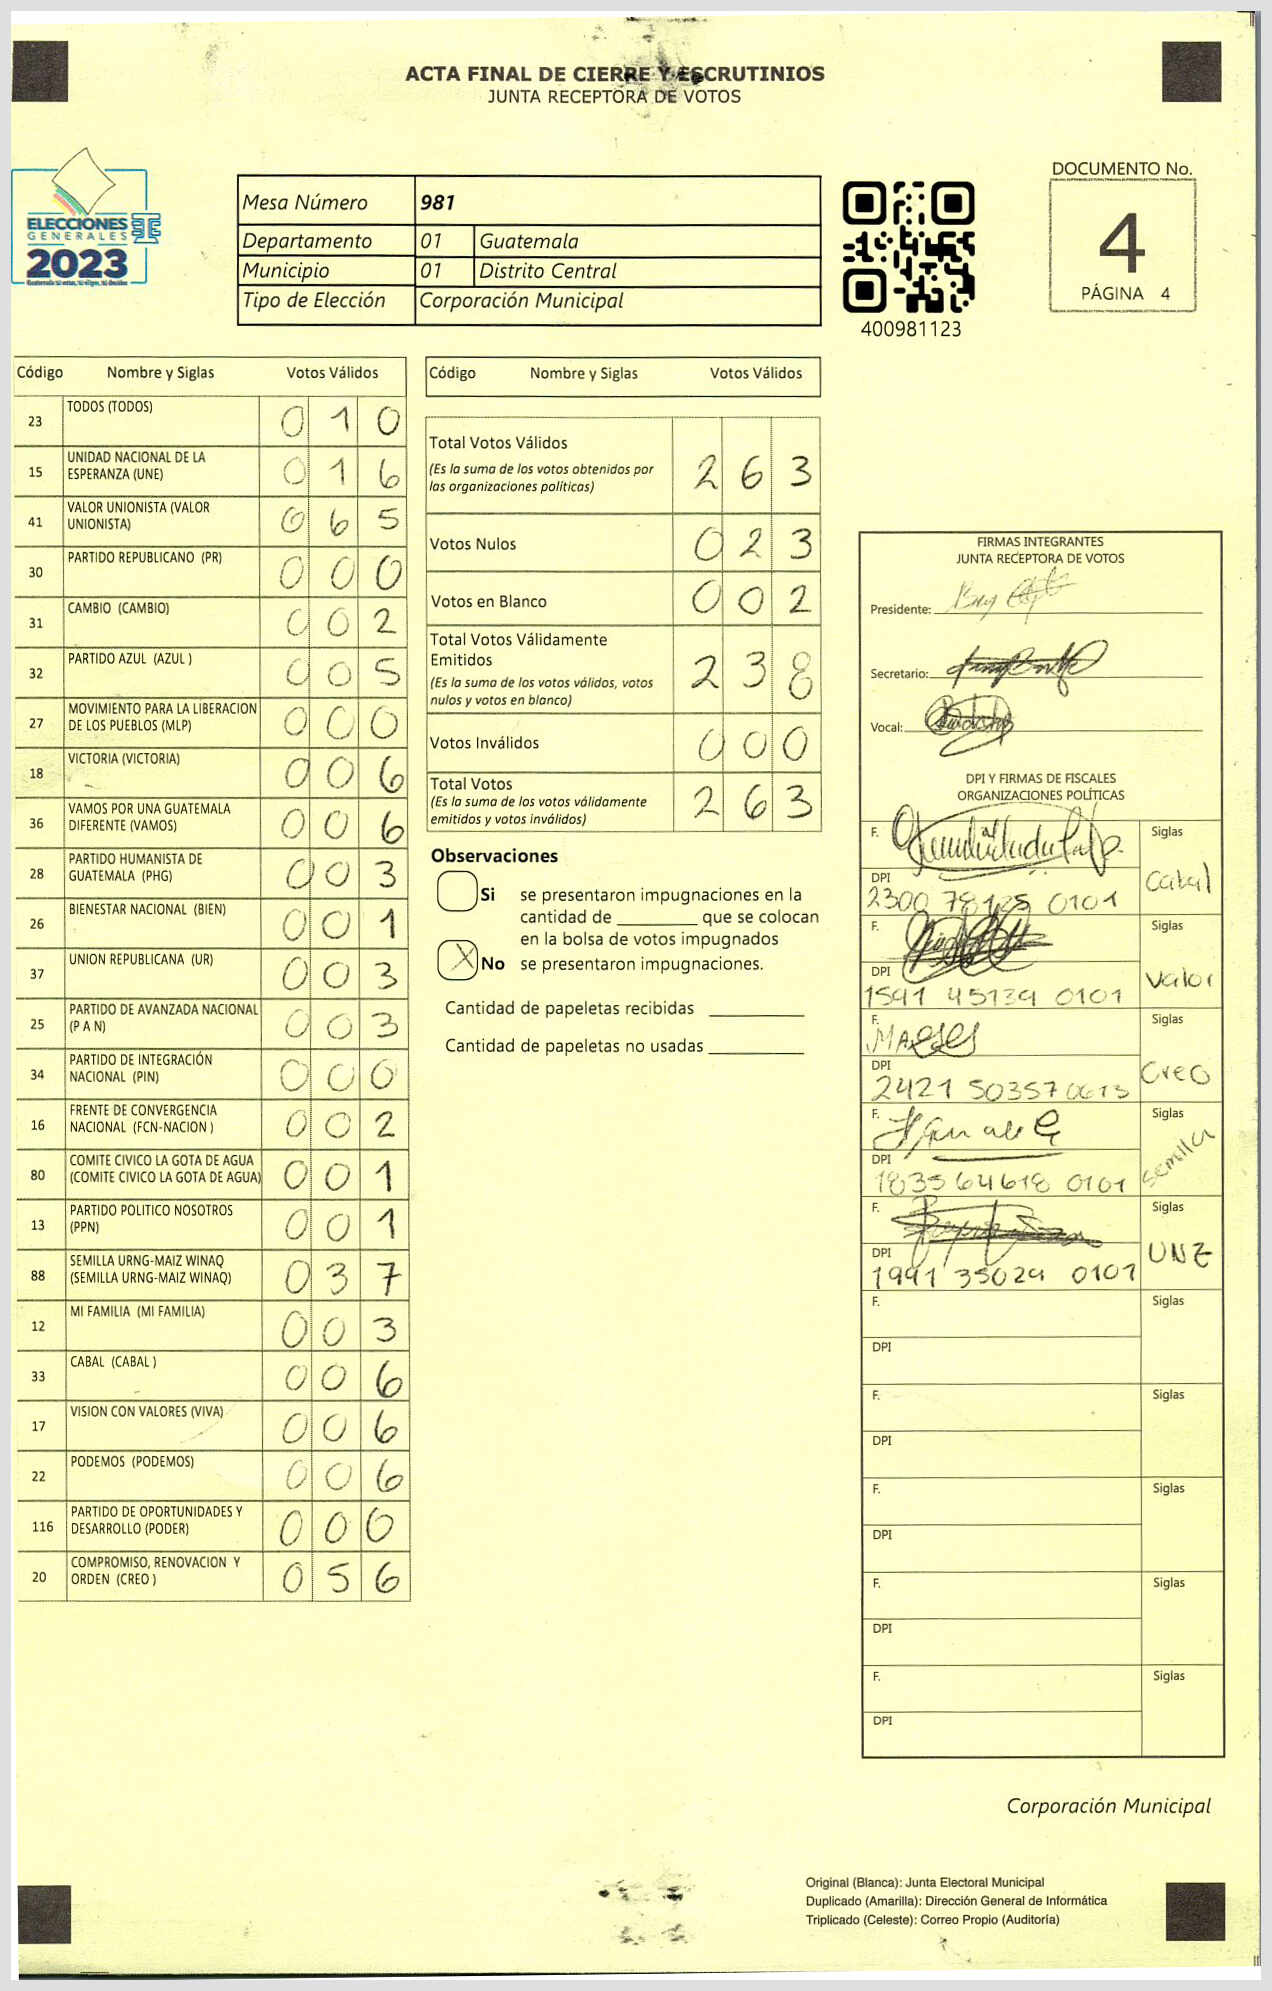 ACTA FINAL DE CIERRE Y ESCRUTINIOS
JUNTA RECEPTORA DE VOTOS
ELECCIONES
GENERALES
2023
Mesa Número 981
Departamento 01 Guatemala
Municipio 01 Distrito Central
Tipo de Elección Corporación Municipal
400981123
DOCUMENTO No.
4
PÁGINA 4
Código Nombre y Siglas Votos Válidos
23 TODOS (TODOS) 0 1 0
15 UNIDAD NACIONAL DE LA
ESPERANZA (UNE) 0 1 6
41 VALOR UNIONISTA (VALOR
UNIONISTA) 0 6 5
30 PARTIDO REPUBLICANO (PR) 0 0 0
31 CAMBIO (CAMBIO) 0 0 2
32 PARTIDO AZUL (AZUL ) 0 0 5
27 MOVIMIENTO PARA LA LIBERACION
DE LOS PUEBLOS (MLP) 0 0 0
18 VICTORIA (VICTORIA) 0 0 6
36 VAMOS POR UNA GUATEMALA
DIFERENTE (VAMOS) 0 0 6
28 PARTIDO HUMANISTA DE
GUATEMALA (PHG) 0 0 3
26 BIENESTAR NACIONAL (BIEN) 0 0 1
37 UNION REPUBLICANA (UR) 0 0 3
25 PARTIDO DE AVANZADA NACIONAL
(P A N) 0 0 3
34 PARTIDO DE INTEGRACIÓN
NACIONAL (PIN) 0 0 0
16 FRENTE DE CONVERGENCIA
NACIONAL (FCN-NACION ) 0 0 2
80 COMITE CIVICO LA GOTA DE AGUA
(COMITE CIVICO LA GOTA DE AGUA) 0 0 1
13 PARTIDO POLITICO NOSOTROS
(PPN) 0 0 1
88 SEMILLA URNG-MAIZ WINAQ
(SEMILLA URNG-MAIZ WINAQ) 0 3 7
12 MI FAMILIA (MI FAMILIA) 0 0 3
33 CABAL (CABAL ) 0 0 6
17 VISION CON VALORES (VIVA) 0 0 6
22 PODEMOS (PODEMOS) 0 0 6
116 PARTIDO DE OPORTUNIDADES Y
DESARROLLO (PODER) 0 0 0
20 COMPROMISO, RENOVACION Y
ORDEN (CREO ) 0 5 6
Código Nombre y Siglas Votos Válidos
Total Votos Válidos
(Es la suma de los votos obtenidos por
las organizaciones políticas) 2 6 3
Votos Nulos 0 2 3
Votos en Blanco 0 0 2
Total Votos Válidamente
Emitidos
(Es la suma de los votos válidos, votos
nulos y votos en blanco) 2 3 8
Votos Inválidos 0 0 0
Total Votos
(Es la suma de los votos válidamente
emitidos y votos inválidos) 2 6 3
Observaciones
Si se presentaron impugnaciones en la
cantidad de ________ que se colocan
en la bolsa de votos impugnados
X No se presentaron impugnaciones.
Cantidad de papeletas recibidas
Cantidad de papeletas no usadas
FIRMAS INTEGRANTES
JUNTA RECEPTORA DE VOTOS
Presidente:
Secretario:
Vocal:
DPI Y FIRMAS DE FISCALES
ORGANIZACIONES POLÍTICAS
F. Siglas
Cabal
DPI
2300 78125 0101
F. Siglas
Valor
DPI
1591 45139 0101
F. Siglas
Creo
DPI
2421 50357 0613
F. Siglas
Semilla
DPI
1835 64618 0101
F. Siglas
UNE
DPI
1991 35029 0101
F. Siglas
DPI
F. Siglas
DPI
F. Siglas
DPI
F. Siglas
DPI
F. Siglas
DPI
Corporación Municipal
Original (Blanca): Junta Electoral Municipal
Duplicado (Amarilla): Dirección General de Informática
Triplicado (Celeste): Correo Propio (Auditoría)